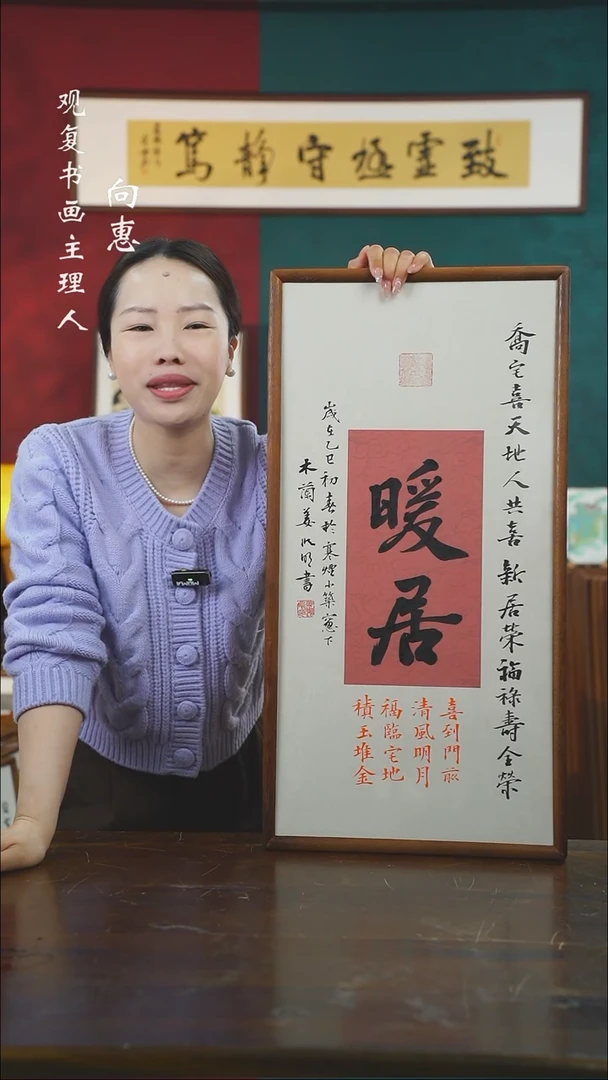 观复书画主理人
向惠
致虚极守静笃
喬宅喜天地人共喜新居榮福祿壽全榮
暖居
歲在乙巳初春於寒煙小築窗下
木蘭姜
書
喜到門前
清風明月
福臨宅地
積玉堆金